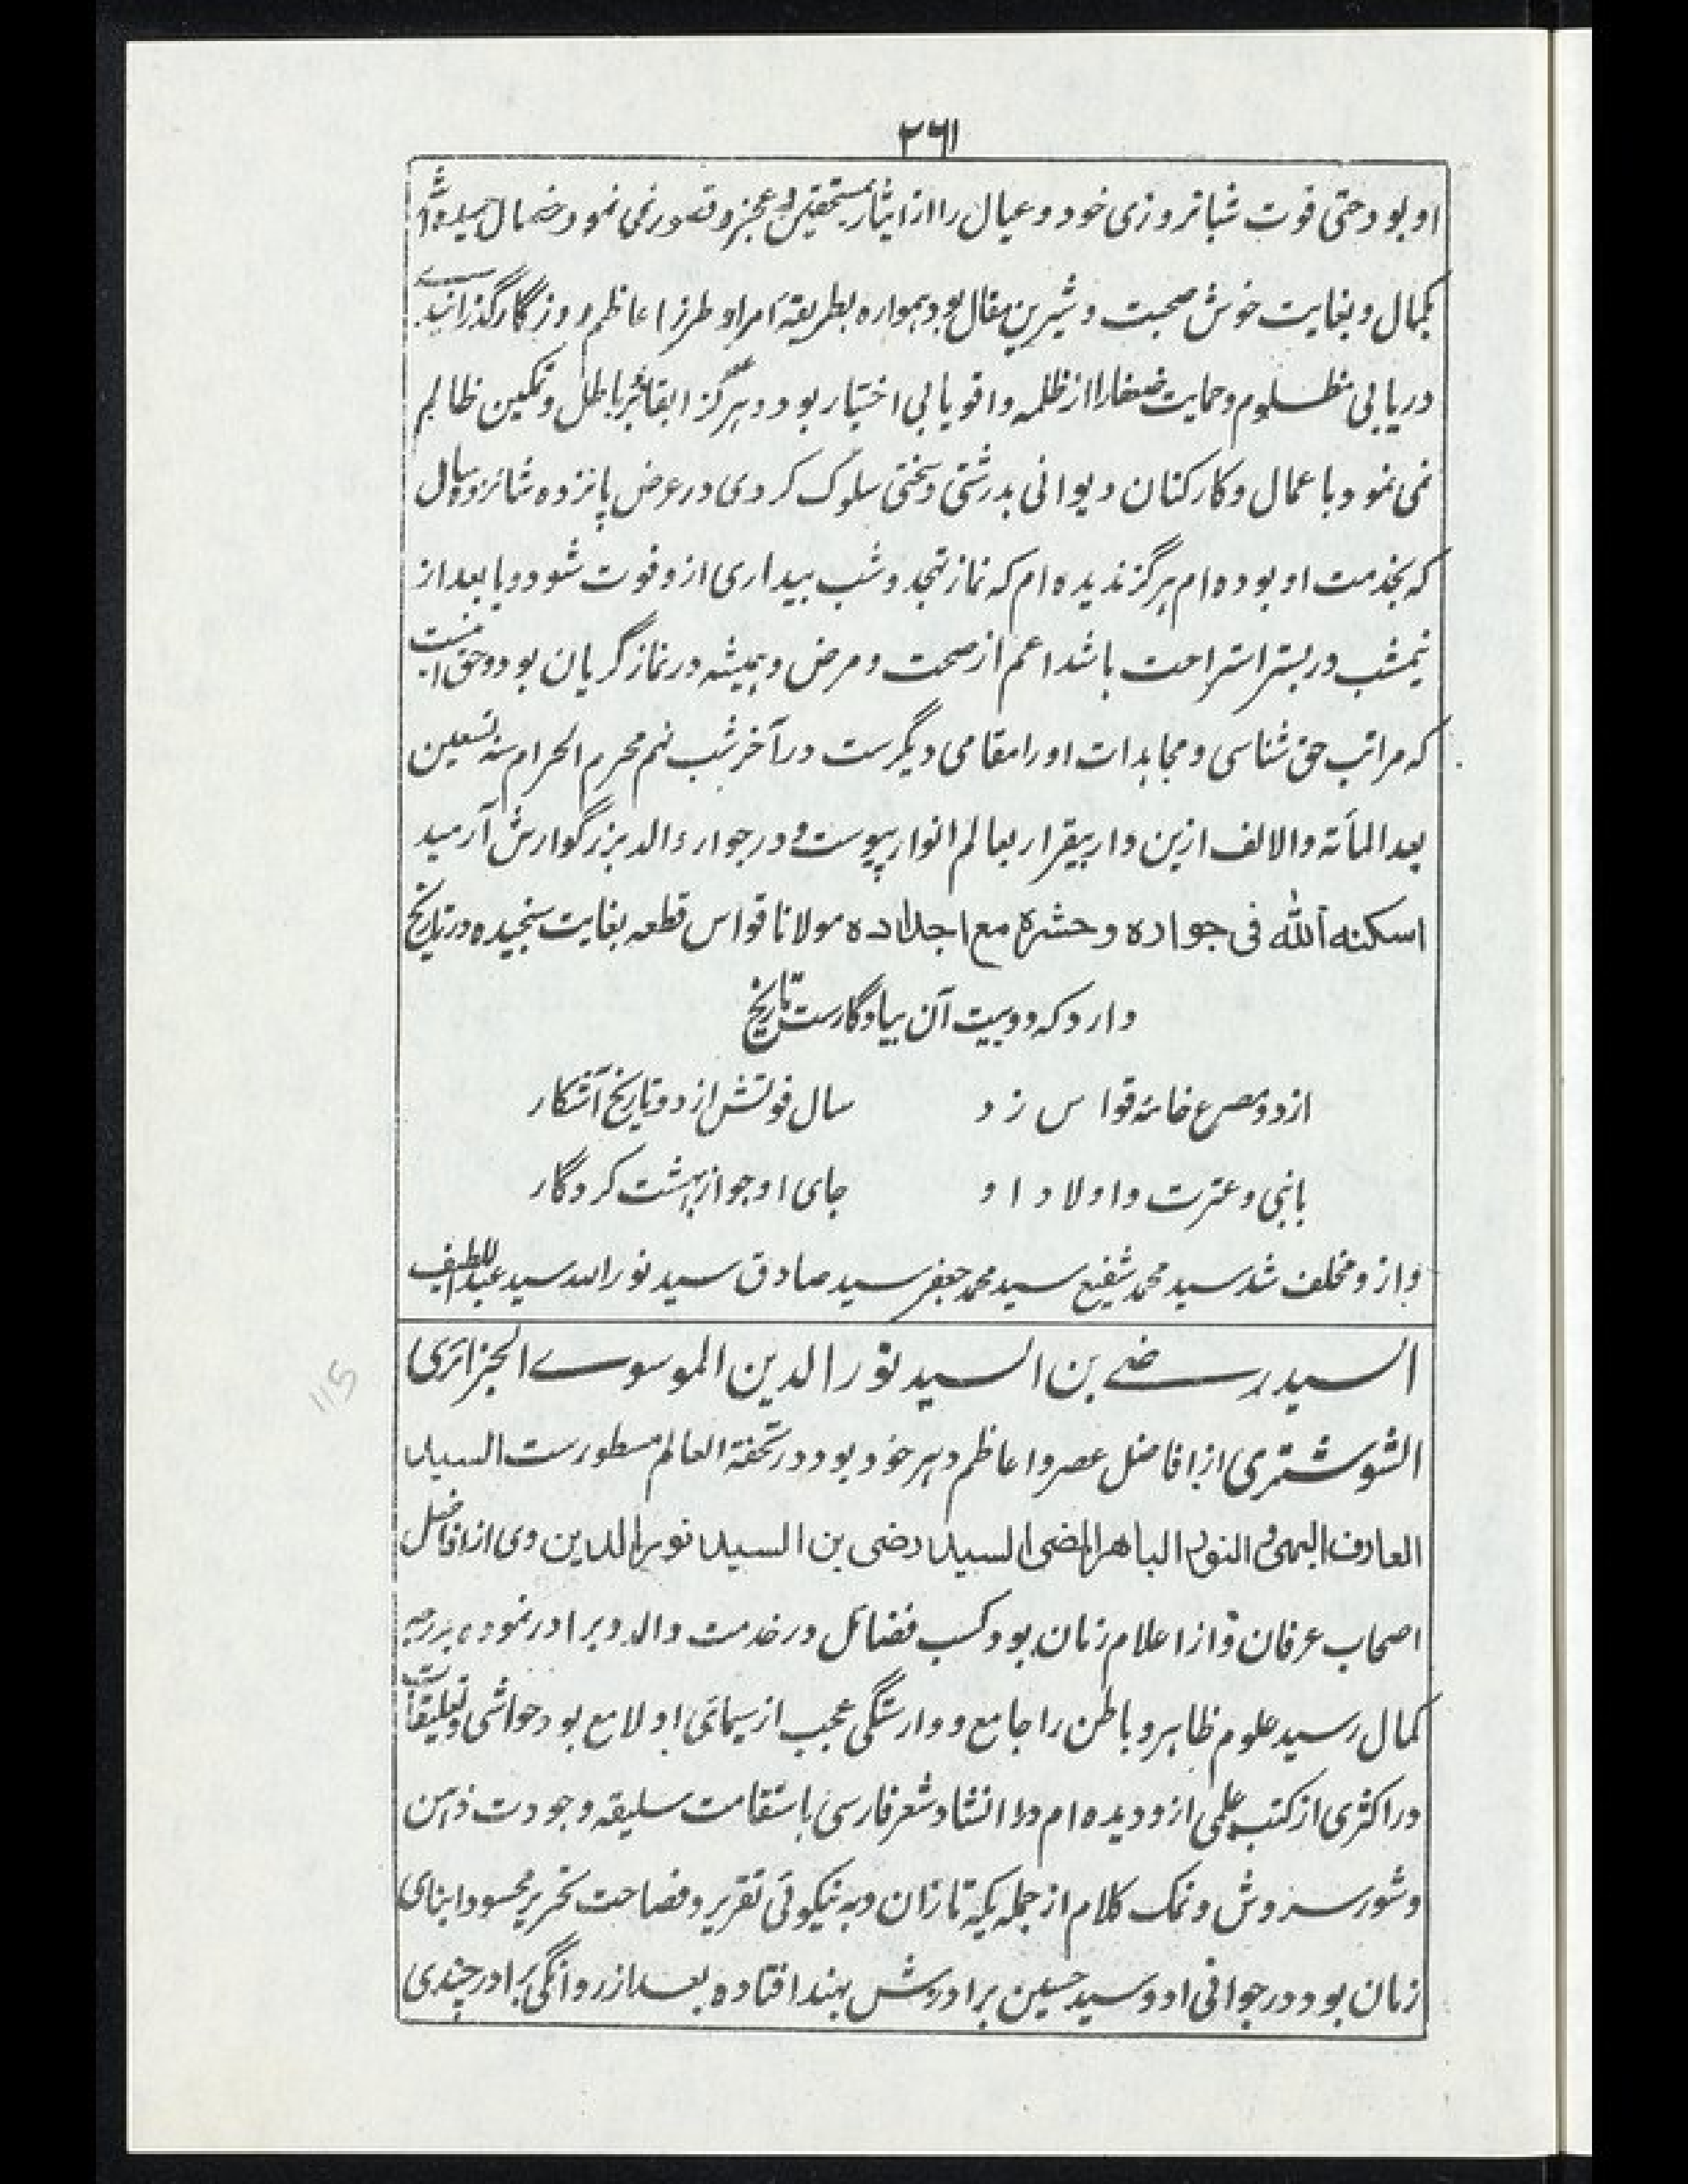 ٢٦١
او بود حتی قوت شبانروزی خود و عیال را از ایثار مستحقین و عجزه قصور نمی نمود خصال
بکمال و بغایت خوش صحبت و شیرین مقال بود همواره بطریقۀ امرا و طرز اعاظم روزگار گذرانیدے
در یابی مظلوم و حمایت ضعفا را از ظلمه و اقویا بی اختیار بود و هرگز ابقا بر باطل و تمکین ظالم
نمی نمود با عمال و کارکنان دیوانی بدرشتی و سختی سلوک کردی در عرض پانزده شانزده سال
که بخدمت او بوده ام هرگز ندیده ام که نماز تهجد و شب بیداری ازو فوت شود و یا بعد از
نیمشب در بستر استراحت باشد اعم از صحت و مرض و همیشه در نماز گریان بود و حق اینست
که مراتب حق شناسی و مجاهدات او را مقامی دیگرست در آخر شب نهم محرم الحرام سنه تسعین
بعد المأته والالف ازین دار بیقرار بعالم انوار پیوست و در جوار والد بزرگوارش آرمید
اسکنه الله فی جواره و حشره مع اجداده مولانا قواس قطعه بغایت سنجیده در تاریخ
دارد که دو بیت آن بیادگارست تاریخ
از دو مصرع خامۀ قواس زد سال فوتش از دو تاریخ آشکار
با نبی و عترت و اولاد او جای او جو از بهشت کردگار
و ازو مخلف شد سید محمد شفیع سید محمد جعفر سید صادق سید نور الله سید عبداللطیف
السید رضے بن السید نور الدین الموسوے الجزائری
الشوشتری از افاضل عصر و اعاظم دهر خود بود در تحفة العالم مسطورست السید
العارف البهی و النور الباهر المضی السید رضی بن السید نور الدین وی از افاضل
اصحاب عرفان و از اعلام زمان بود کسب فضائل در خدمت والد و برادر نموده بدرجه
کمال رسید علوم ظاهر و باطن را جامع و وارستگی عجب از سیمای او لامع بود حواشی و تعلیقات
در اکثری از کتب علمی ازو دیده ام در انشاد شعر فارسی باستقامت سلیقه و جودت ذهن
و شور سروش و نمک کلام از جمله یکه تازان و به نیکوئی تقریر و فصاحت تحریر محسود ابنای
زمان بود در جوانی او و سید حسین برادرش بهند افتاده بعد از روانگی برادر چندی
115